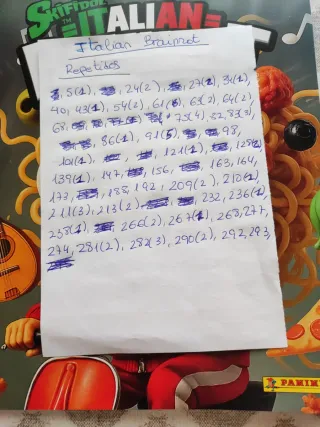 Skifidol
ITALIAN
Italian Brainrot
Repetidos
5(1), 24(2), 27(1), 31(1),
40, 43(1), 54(2), 61(5), 63(2), 64(2),
68, 75(4), 82, 83(3),
86(1), 91(5), 98,
101(1), 121(1), 128(2)
139(1), 147, 156, 163, 164,
177, 188, 192, 209(2), 210(2)
211(3), 213(2), 232, 236(1)
238(1), 266(2), 267(1), 268, 271,
274, 281(2), 282(3), 290(2), 292, 293,
PANINI